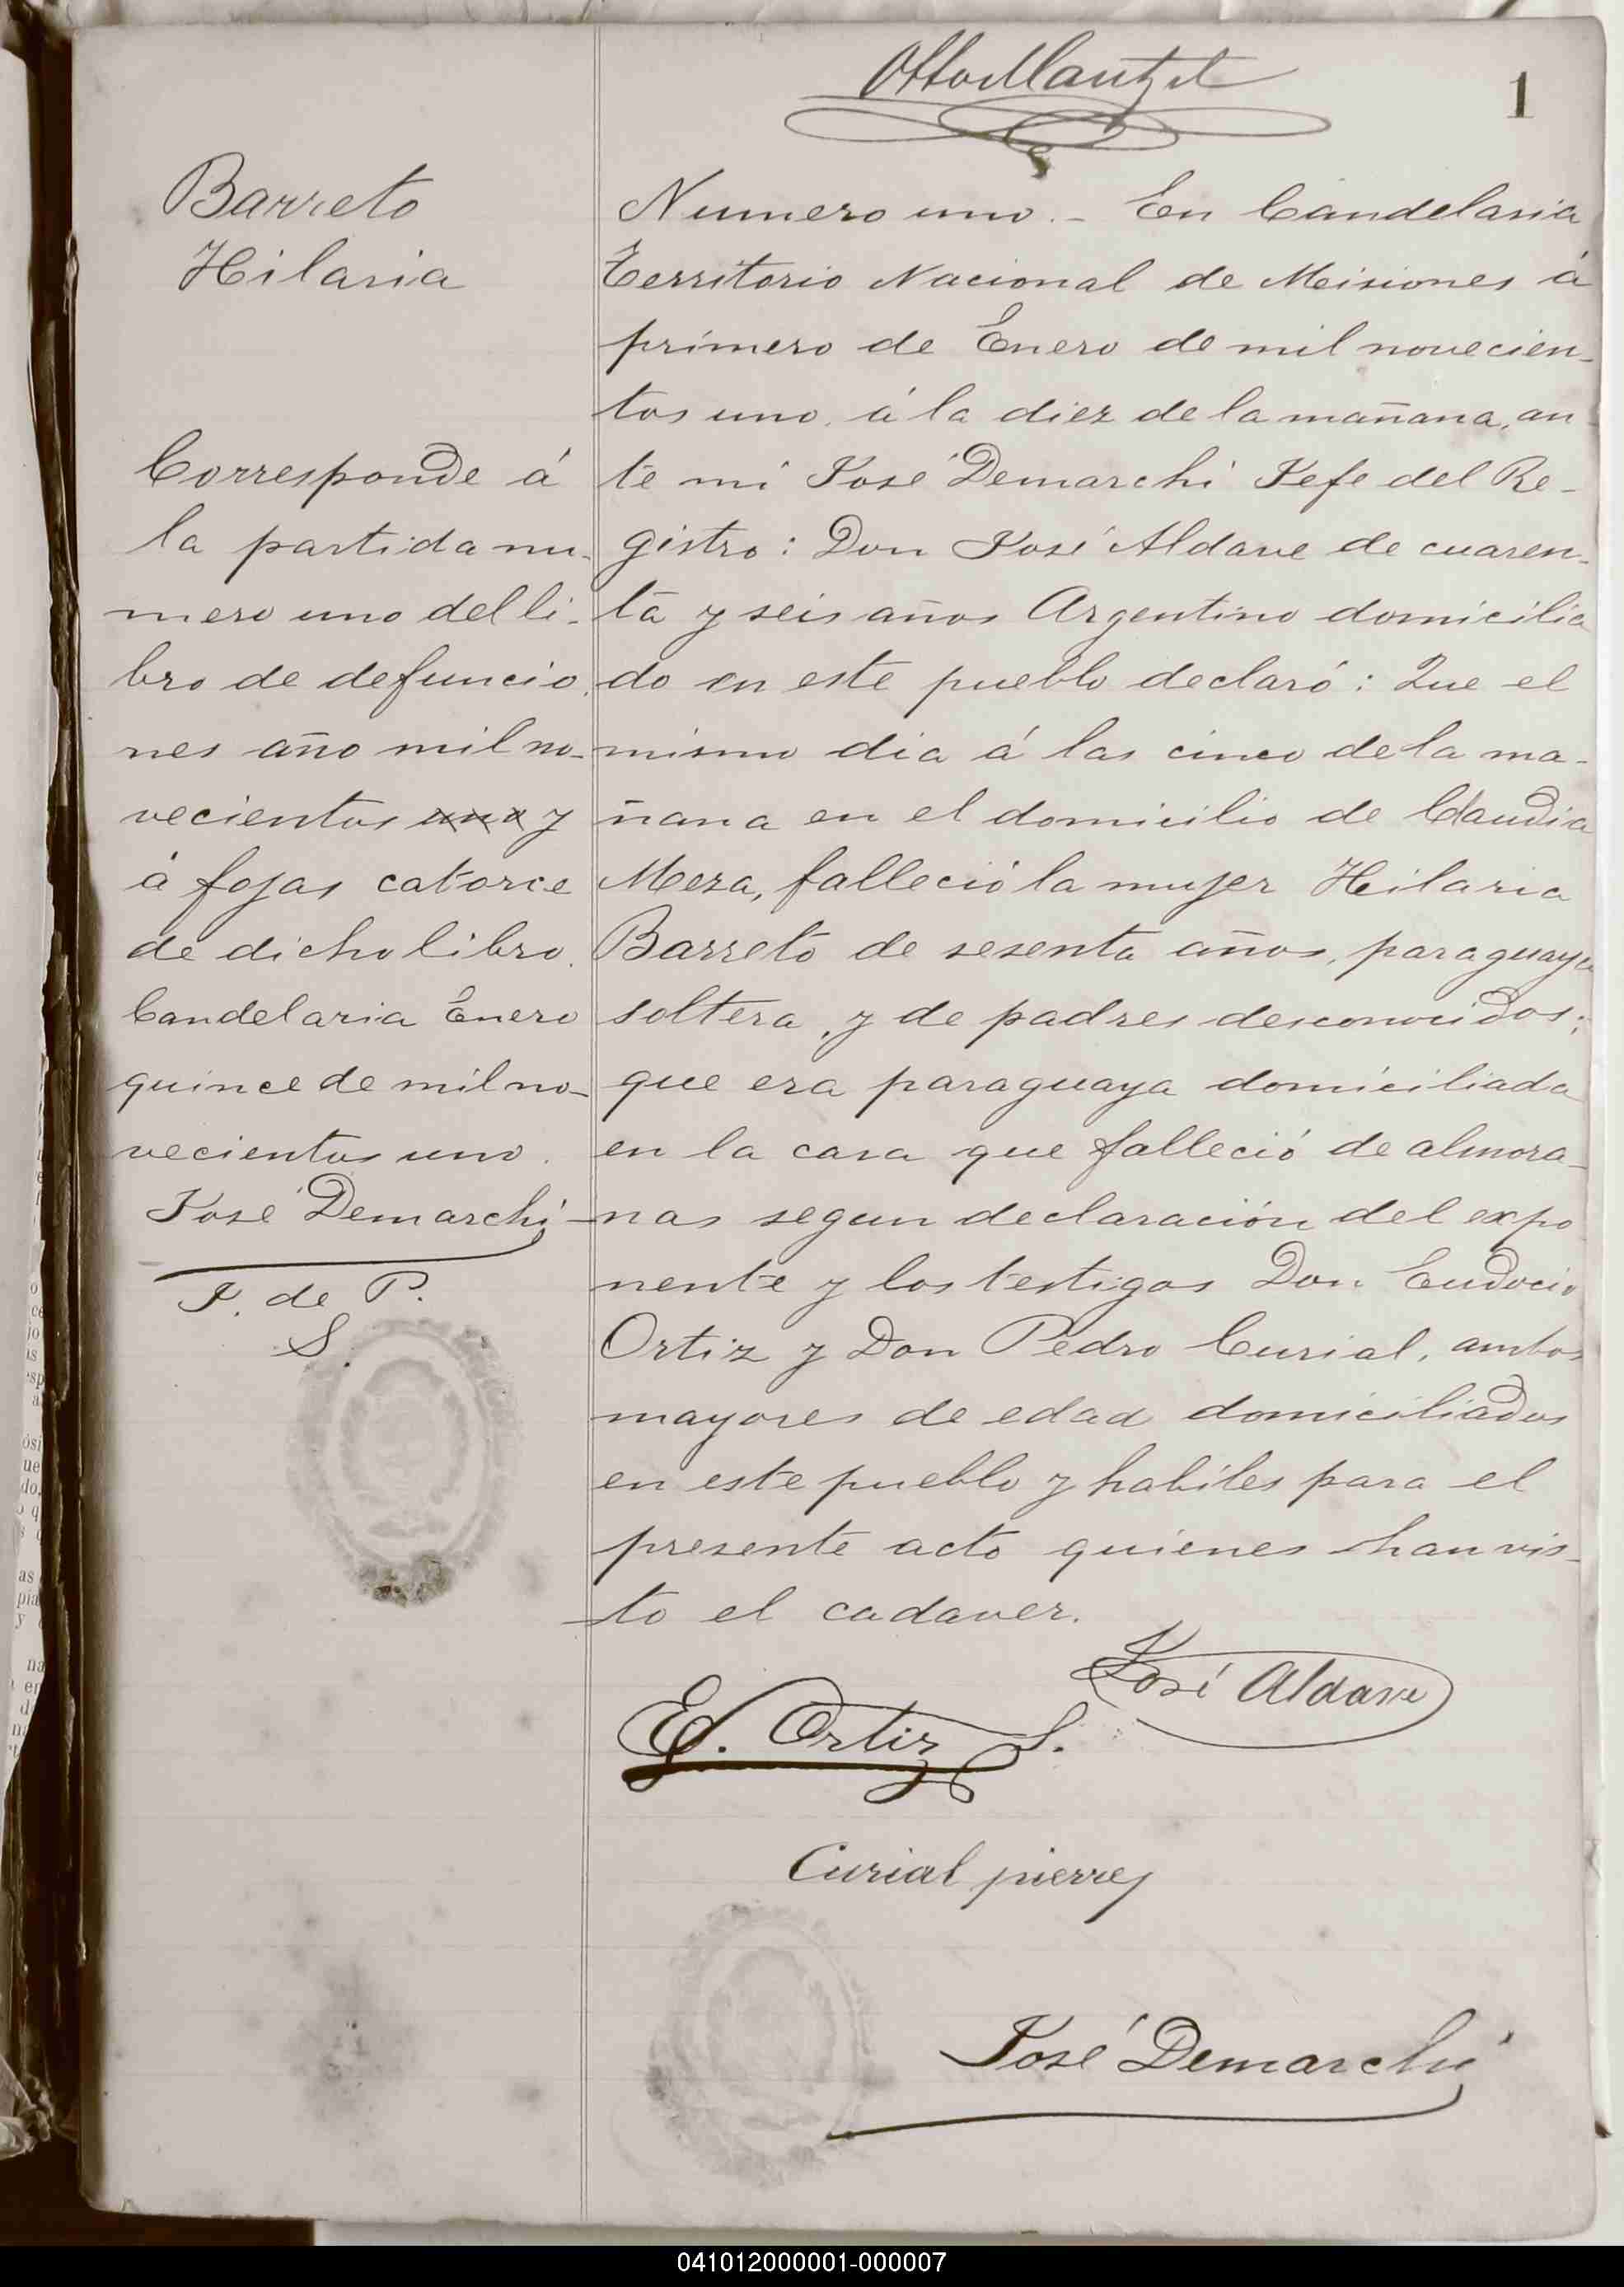 Otto Mantzel
1
Barreto
Hilaria
Corresponde á
la partida nu-
mero uno del li-
bro de defuncio-
nes año mil no-
vecientos uno y
á fojas catorce
de dicho libro.
Candelaria Enero
quince de mil no-
vecientos uno.
José Demarchi
J. de P.
S.
Numero uno.- En Candelaria
Territorio Nacional de Misiones á
primero de Enero de mil novecien-
tos uno, á la diez de la mañana, an
te mi José Demarchi Jefe del Re-
gistro: Don José Aldave de cuaren-
ta y seis años Argentino domicilia
do en este pueblo declaró: Que el
mismo dia á las cinco de la ma-
ñana en el domicilio de Claudia
Meza, falleció la mujer Hilaria
Barreto de sesenta años, paraguaya
soltera, y de padres desconocidos;
que era paraguaya domiciliada
en la casa que falleció de almora-
nas segun declaración del expo
nente y los testigos Don Eudocio
Ortiz y Don Pedro Curial, ambos
mayores de edad domiciliados
en este pueblo y habiles para el
presente acto quienes han vis-
to el cadaver.
José Aldave
E. Ortiz S.
Curial pierre
José Demarchi
041012000001-000007